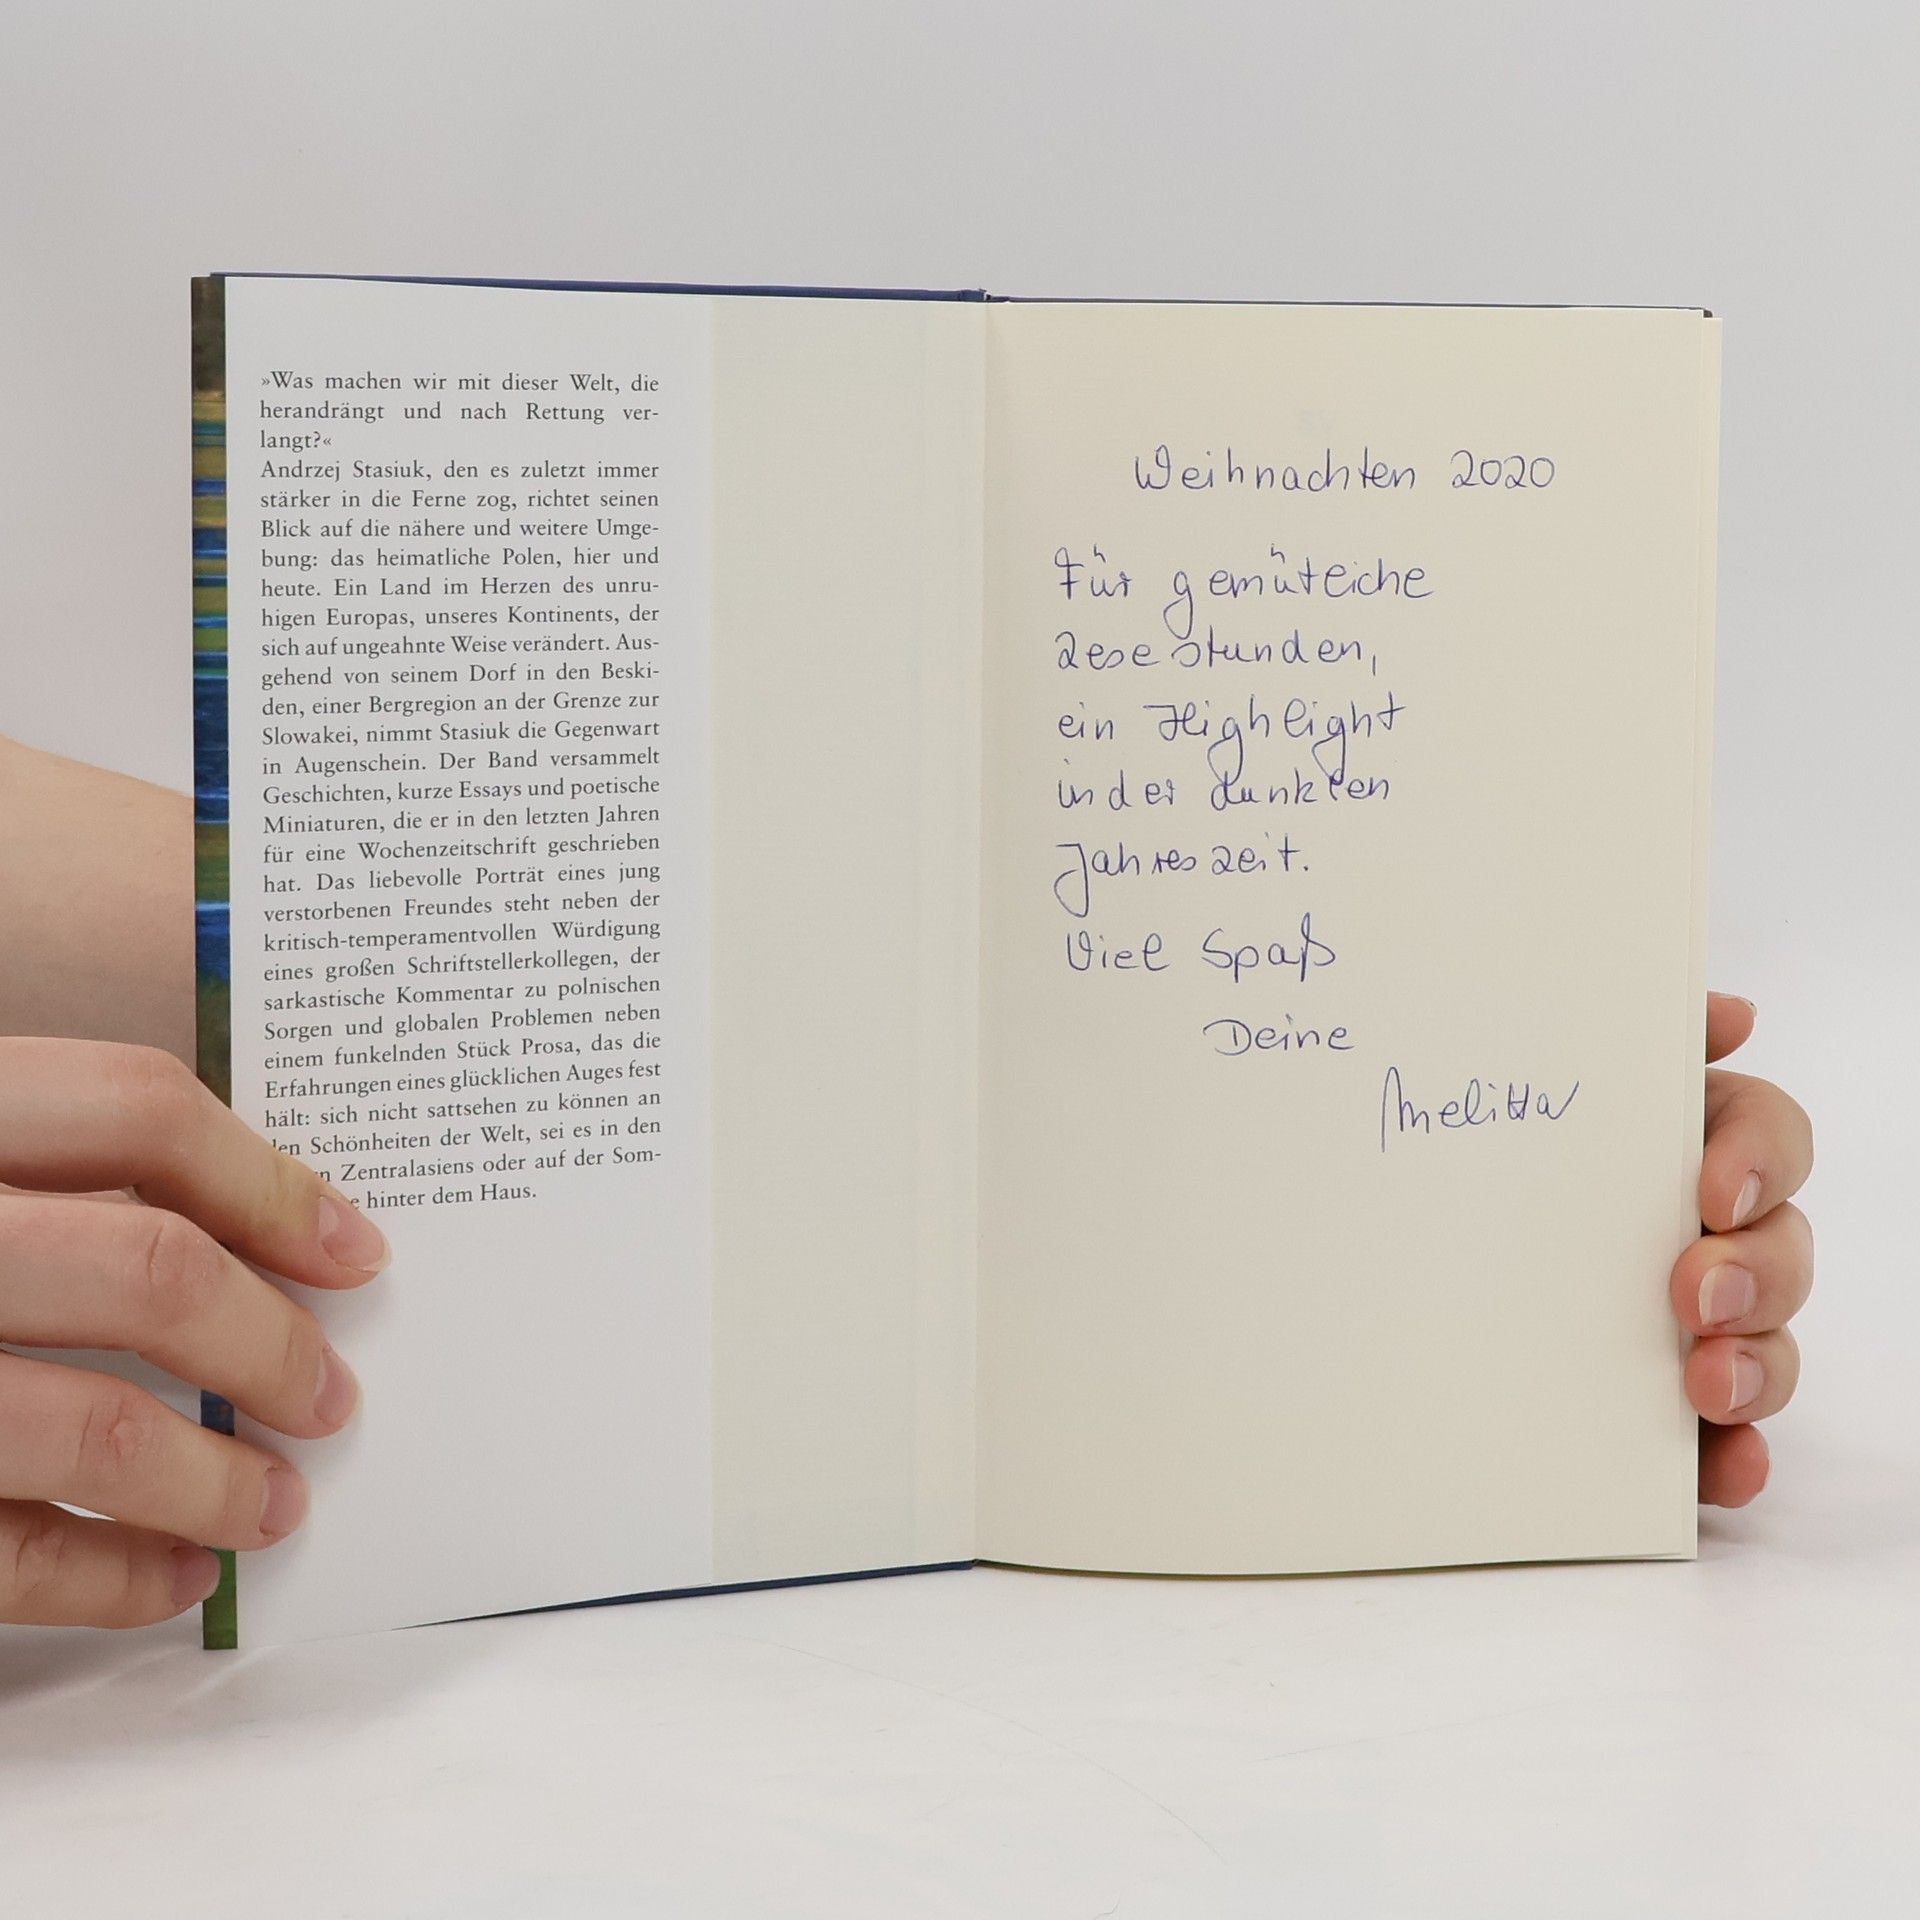 »Was machen wir mit dieser Welt, die
herandrängt und nach Rettung ver-
langt?«
Andrzej Stasiuk, den es zuletzt immer
stärker in die Ferne zog, richtet seinen
Blick auf die nähere und weitere Umge-
bung: das heimatliche Polen, hier und
heute. Ein Land im Herzen des unru-
higen Europas, unseres Kontinents, der
sich auf ungeahnte Weise verändert. Aus-
gehend von seinem Dorf in den Beski-
den, einer Bergregion an der Grenze zur
Slowakei, nimmt Stasiuk die Gegenwart
in Augenschein. Der Band versammelt
Geschichten, kurze Essays und poetische
Miniaturen, die er in den letzten Jahren
für eine Wochenzeitschrift geschrieben
hat. Das liebevolle Porträt eines jung
verstorbenen Freundes steht neben der
kritisch-temperamentvollen Würdigung
eines großen Schriftstellerkollegen, der
sarkastische Kommentar zu polnischen
Sorgen und globalen Problemen neben
einem funkelnden Stück Prosa, das die
Erfahrungen eines glücklichen Auges fest
hält: sich nicht sattsehen zu können an
den Schönheiten der Welt, sei es in den
Zentralasiens oder auf der Som-
hinter dem Haus.
Weihnachten 2020
Für gemütliche
Lesestunden,
ein Highlight
in der dunklen
Jahreszeit.
Viel Spaß
Deine
Melitta